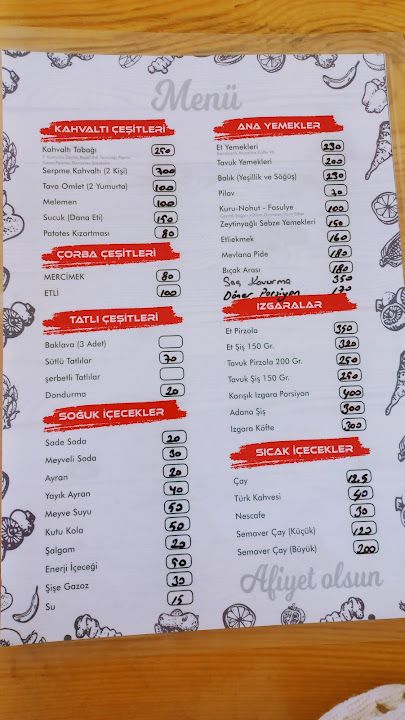 Menü
KAHVALTI ÇEŞİTLERİ
Kahvaltı Tabağı 250
Serpme Kahvaltı (2 Kişi) 700
Tava Omlet (2 Yumurta) 100
Melemen 100
Sucuk (Dana Eti) 150
Patates Kızartması 80
ÇORBA ÇEŞİTLERİ
MERCİMEK 80
ETLİ 100
TATLI ÇEŞİTLERİ
Baklava (3 Adet)
Sütlü Tatlılar 70
şerbetli Tatlılar
Dondurma 20
SOĞUK İÇECEKLER
Sade Soda 20
Meyveli Soda 30
Ayran 20
Yayık Ayran 40
Meyve Suyu 50
Kutu Kola 50
Şalgam 20
Enerji İçeceği 50
Şişe Gazoz 30
Su 15
ANA YEMEKLER
Et Yemekleri 230
Tavuk Yemekleri 200
Balık (Yeşillik ve Söğüş) 230
Pilav 70
Kuru-Nohut - Fasulye 100
Zeytinyağlı Sebze Yemekleri 150
Etliekmek 160
Mevlana Pide 180
Bıçak Arası 180
Saç Kavurma 350
Döner Porsiyon 170
IZGARALAR
Et Pirzola 350
Et Şiş 150 Gr. 320
Tavuk Pirzola 200 Gr. 250
Tavuk Şiş 150 Gr. 250
Karışık Izgara Porsiyon 400
Adana Şiş 300
Izgara Köfte 300
SICAK İÇECEKLER
Çay 12.5
Türk Kahvesi 40
Nescafe 30
Semaver Çay (Küçük) 120
Semaver Çay (Büyük) 200
Afiyet olsun